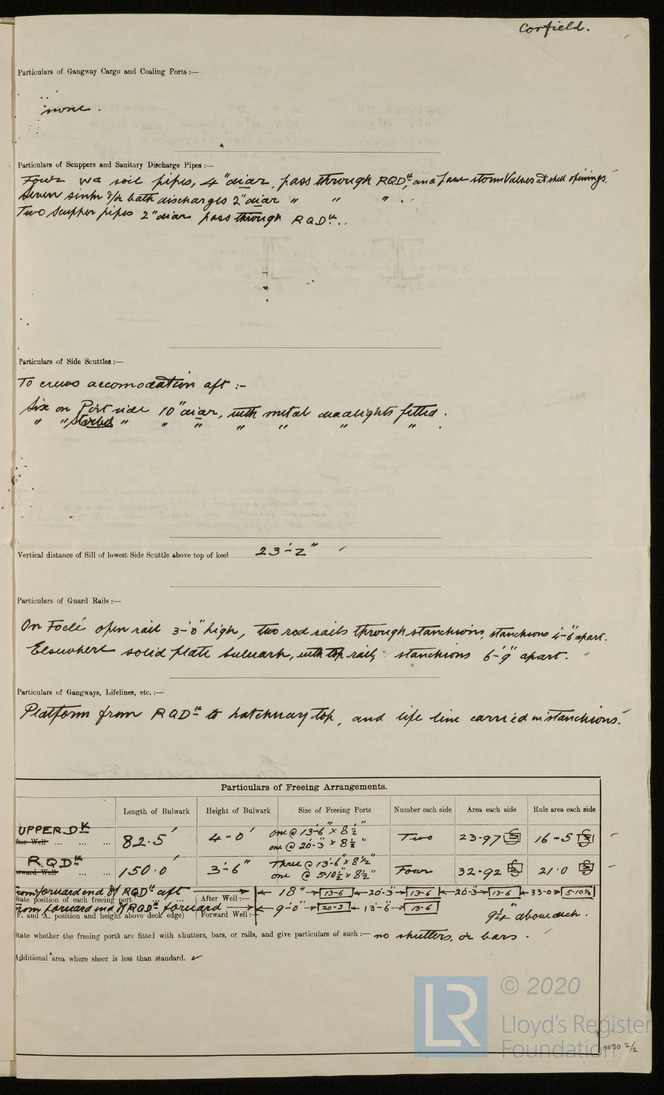 Corfield.
Particulars of Gangway Cargo and Coaling Ports :—
none.
Particulars of Scuppers and Sanitary Discharge Pipes :—
Four wc soil pipes, 4" diar, pass through RQDk, and have storm valves at shell openings.
Seven sinks &/or bath discharges 2" diar " " " .
Two scupper pipes 2" diar pass through RQDk.
Particulars of Side Scuttles :—
To crews accomodation aft :-
Six on Port side 10" diar, with metal deadlights fitted.
" " Starbd " " " " " " " .
Vertical distance of Sill of lowest Side Scuttle above top of keel 23'-2"
Particulars of Guard Rails :—
On Focle open rail 3'-0" high, two rod rails through stanchions, stanchions 4'-6" apart.
Elsewhere solid plate bulwark, with top rail, stanchions 6'-9" apart.
Particulars of Gangways, Lifelines, etc. :—
Platform from RQDk to hatchway top, and life line carried in stanchions.
Particulars of Freeing Arrangements.
Length of Bulwark Height of Bulwark Size of Freeing Ports Number each side Area each side Rule area each side
UPPER Dk After Well 82.5' 4'-0" one @ 13'-6" x 8½" one @ 20'-3" x 8½" Two 23.97 16.5
RQDk Forward Well 150.0' 3'-6" Three @ 13'-6" x 8½" one @ 5'-10½" x 8½" Four 32.92 21.0
From forward end of RQDk aft After Well :— 18" 13-6 20-3 13-6 20-3 13-6 33-0 5-10½
State position of each freeing port
From forward end of RQDk forward Forward Well :— 9'-0" 20-3 13-6 13-6
F. and A. position and height above deck edge) 9¼" above deck.
State whether the freeing ports are fitted with shutters, bars, or rails, and give particulars of such :— no shutters, or bars.
Additional area where sheer is less than standard. ✓
© 2020
LR Lloyd's Register
Foundation
2/2